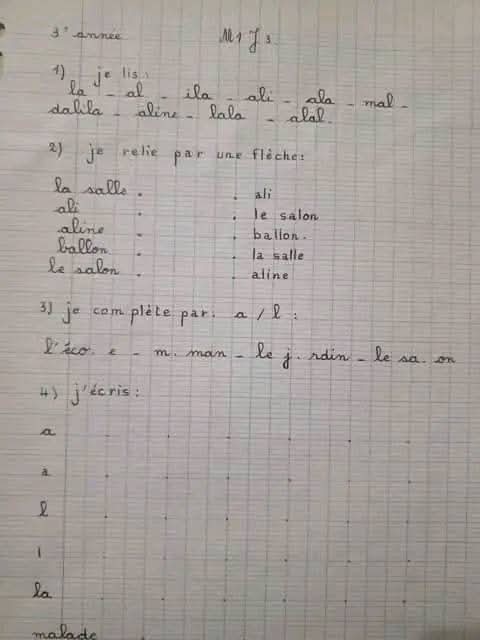 3° année M1 J3
1) je lis:
la - al - ila - ali - ala - mal -
dalila - aline - lala - alal.
2) je relie par une flèche:
la salle . . ali
ali . . le salon
aline . . ballon.
ballon . . la salle
le salon . . aline
3) je complète par: a / l :
l'éco. e - m. man - le j. rdin - le sa. on
4) j'écris:
a
a
l
l
la
malade